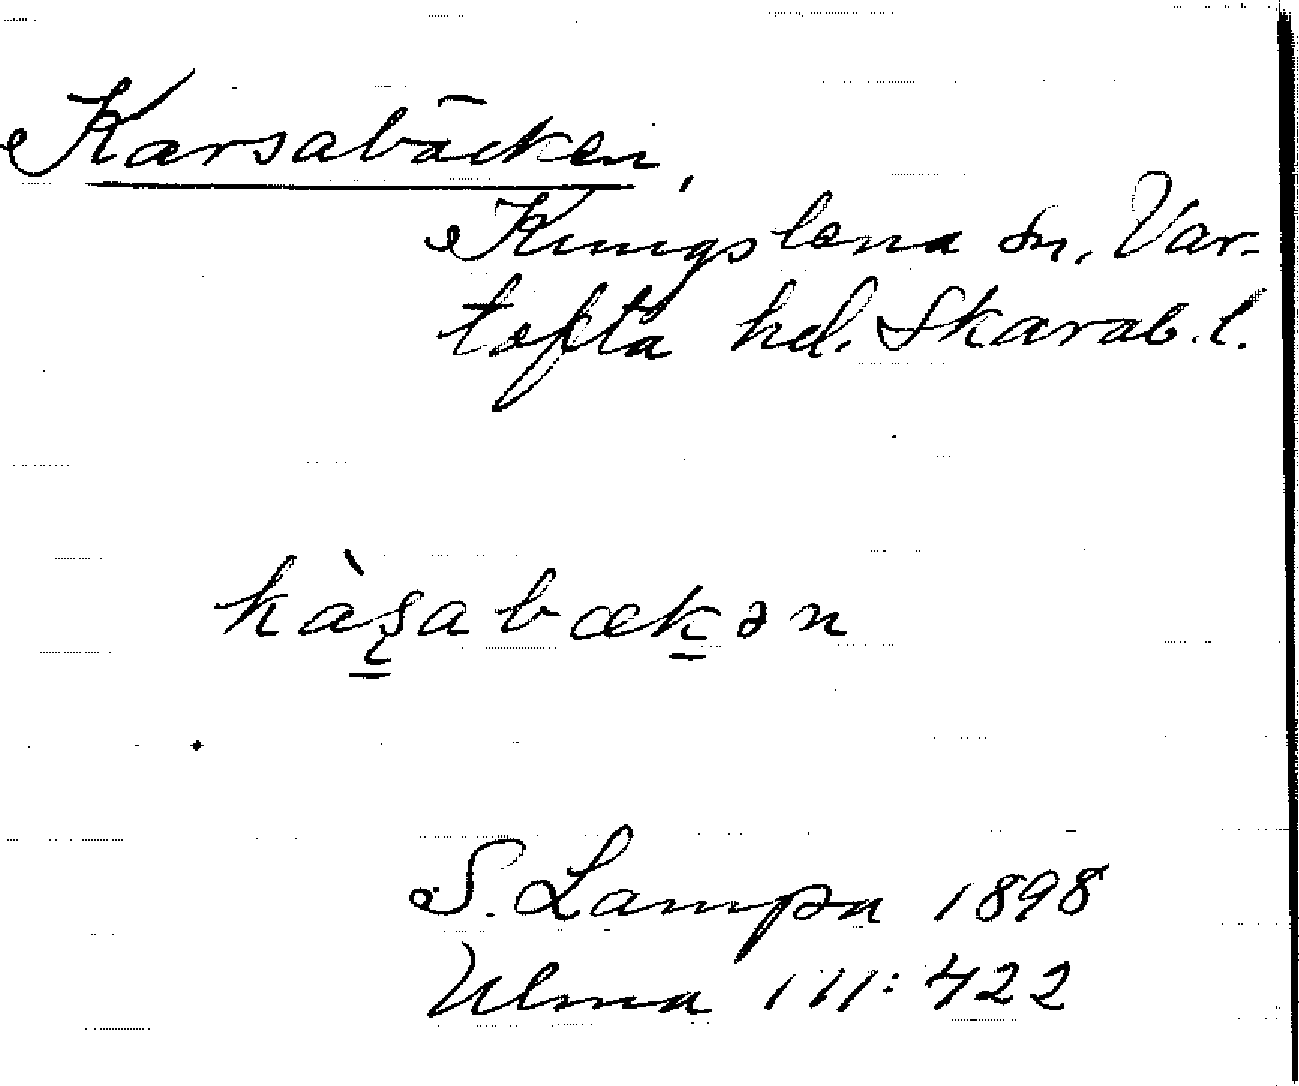 Karsabäcken,
Kungslena sn. Var-
tofta hd. Skarab. l.
kàʂabækən
S. Lampa 1898
Ulma 111:422